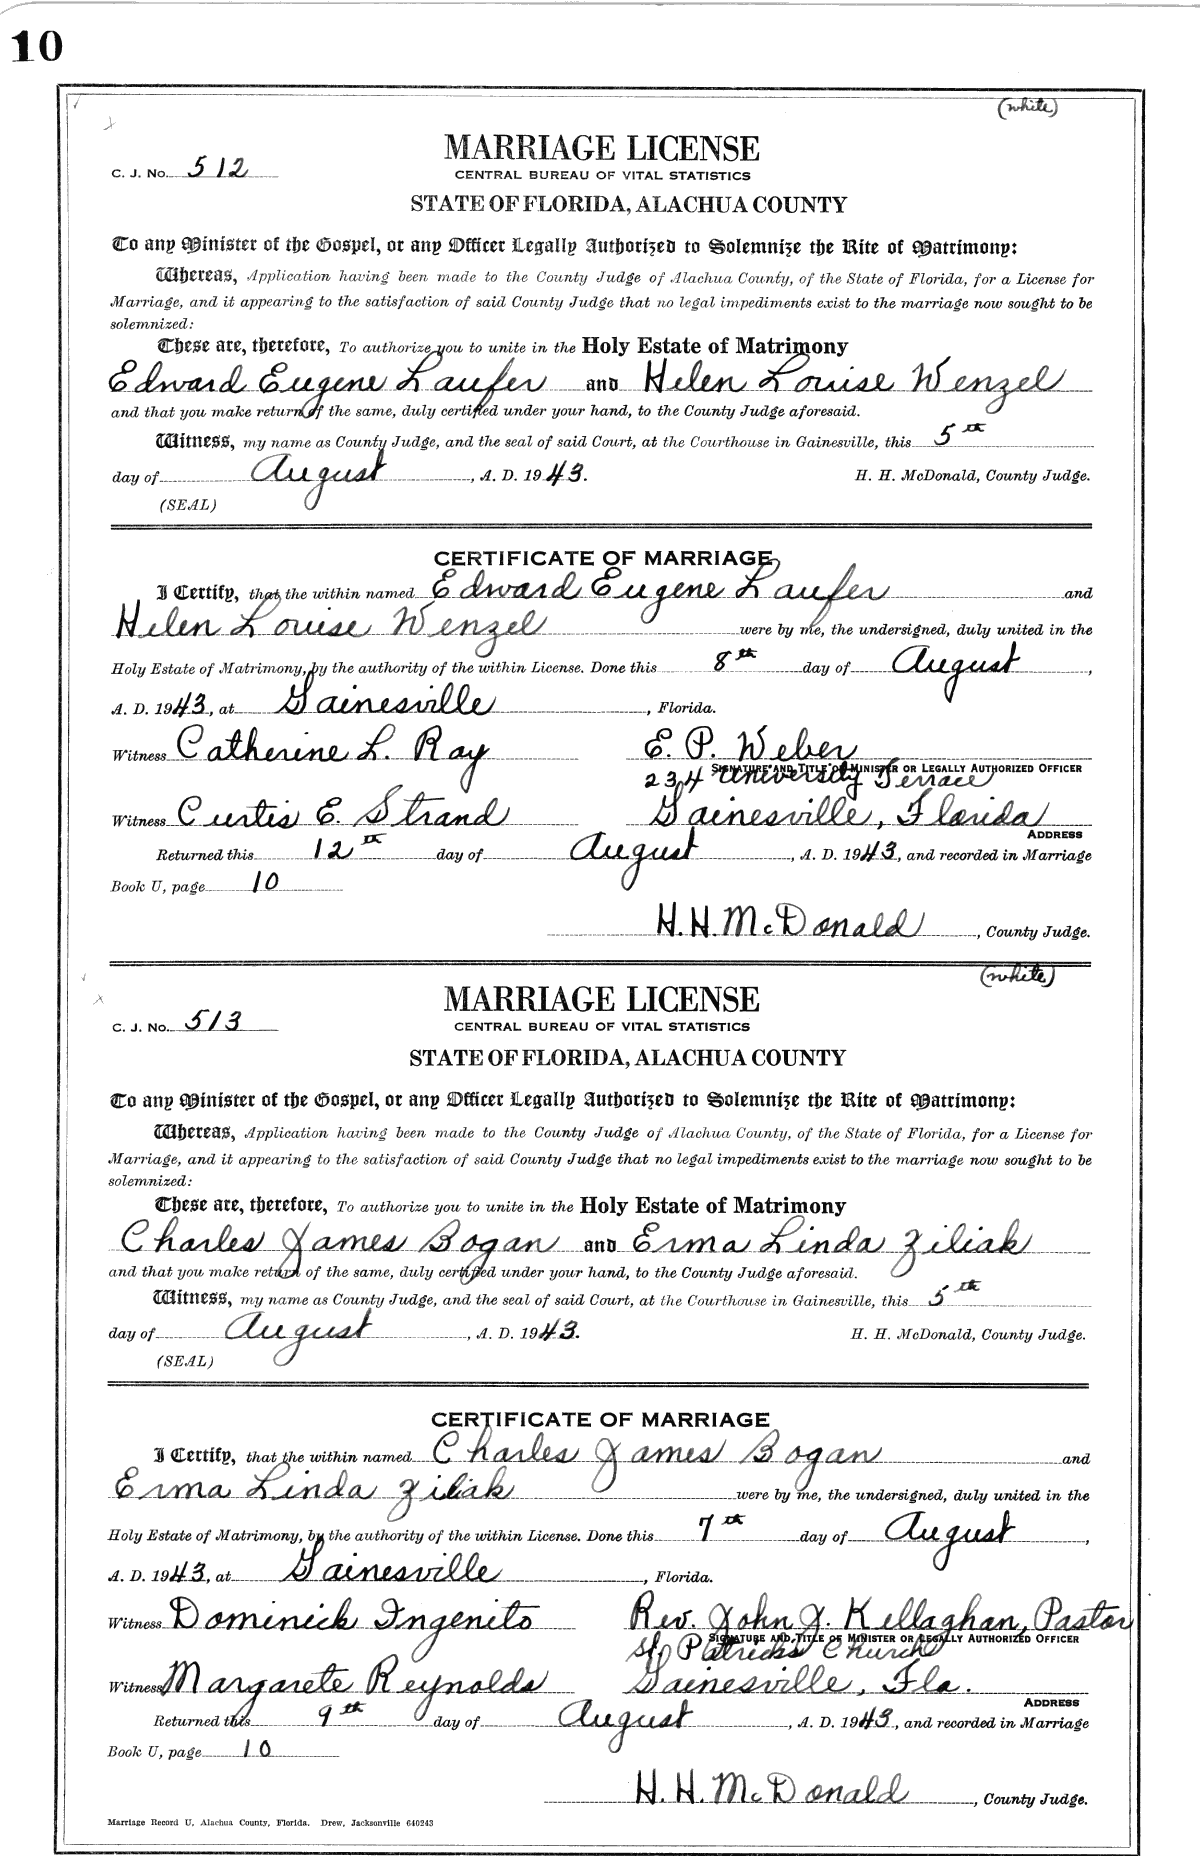 10
(white)
MARRIAGE LICENSE
C. J. No. 512
CENTRAL BUREAU OF VITAL STATISTICS
STATE OF FLORIDA, ALACHUA COUNTY
To any Minister of the Gospel, or any Officer Legally Authorized to Solemnize the Rite of Matrimony:
Whereas, Application having been made to the County Judge of Alachua County, of the State of Florida, for a License for
Marriage, and it appearing to the satisfaction of said County Judge that no legal impediments exist to the marriage now sought to be
solemnized:
These are, therefore, To authorize you to unite in the Holy Estate of Matrimony
Edward Eugene Laufer and Helen Louise Wenzel
and that you make return of the same, duly certified under your hand, to the County Judge aforesaid.
Witness, my name as County Judge, and the seal of said Court, at the Courthouse in Gainesville, this 5th
day of August, A. D. 1943. H. H. McDonald, County Judge.
(SEAL)
CERTIFICATE OF MARRIAGE
I Certify, that the within named Edward Eugene Laufer and
Helen Louise Wenzel were by me, the undersigned, duly united in the
Holy Estate of Matrimony, by the authority of the within License. Done this 8th day of August,
A. D. 1943, at Gainesville, Florida.
Witness Catherine L. Ray E. P. Weber
SIGNATURE AND TITLE OF MINISTER OR LEGALLY AUTHORIZED OFFICER
234 University Terrace
Witness Curtis E. Strand Gainesville, Florida
ADDRESS
Returned this 12th day of August, A. D. 1943, and recorded in Marriage
Book U, page 10
H. H. McDonald, County Judge.
(white)
MARRIAGE LICENSE
C. J. No. 513
CENTRAL BUREAU OF VITAL STATISTICS
STATE OF FLORIDA, ALACHUA COUNTY
To any Minister of the Gospel, or any Officer Legally Authorized to Solemnize the Rite of Matrimony:
Whereas, Application having been made to the County Judge of Alachua County, of the State of Florida, for a License for
Marriage, and it appearing to the satisfaction of said County Judge that no legal impediments exist to the marriage now sought to be
solemnized:
These are, therefore, To authorize you to unite in the Holy Estate of Matrimony
Charles James Bogan and Erma Linda Ziliak
and that you make return of the same, duly certified under your hand, to the County Judge aforesaid.
Witness, my name as County Judge, and the seal of said Court, at the Courthouse in Gainesville, this 5th
day of August, A. D. 1943. H. H. McDonald, County Judge.
(SEAL)
CERTIFICATE OF MARRIAGE
I Certify, that the within named Charles James Bogan and
Erma Linda Ziliak were by me, the undersigned, duly united in the
Holy Estate of Matrimony, by the authority of the within License. Done this 7th day of August,
A. D. 1943, at Gainesville, Florida.
Witness Dominick Ingenito Rev. John J. Kellaghan, Pastor
SIGNATURE AND TITLE OF MINISTER OR LEGALLY AUTHORIZED OFFICER
St. Patricks Church
Witness Margarete Reynolds Gainesville, Fla.
ADDRESS
Returned this 9th day of August, A. D. 1943, and recorded in Marriage
Book U, page 10
H. H. McDonald, County Judge.
Marriage Record U, Alachua County, Florida. Drew, Jacksonville 640243